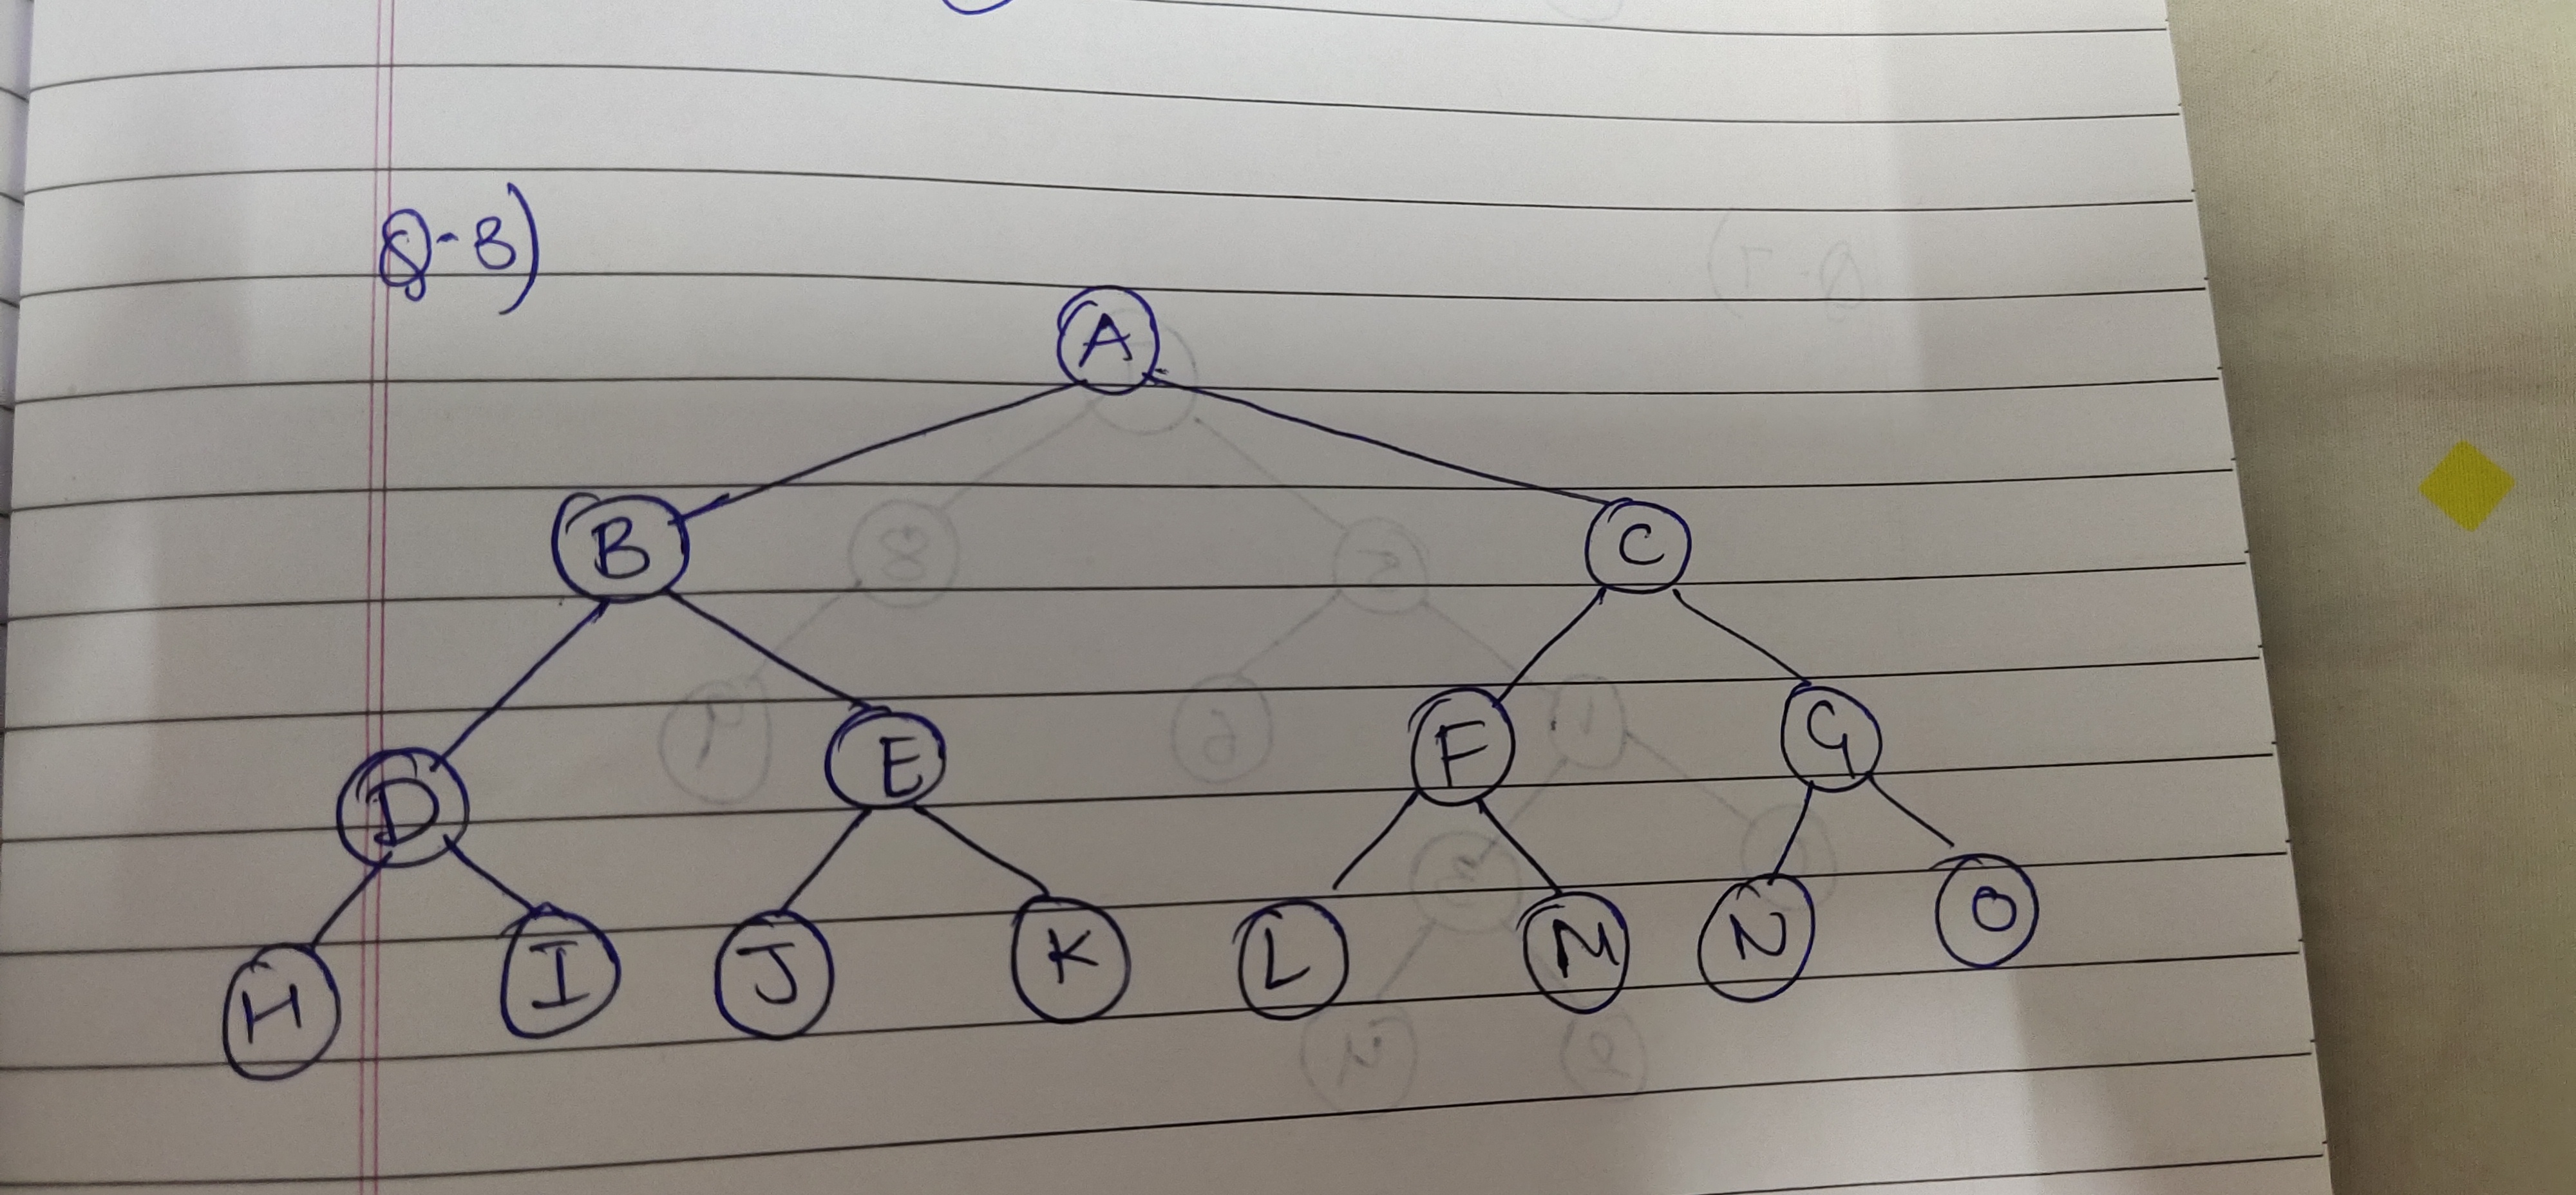 Q-8)
A
B C
D E F G
H I J K L M N O